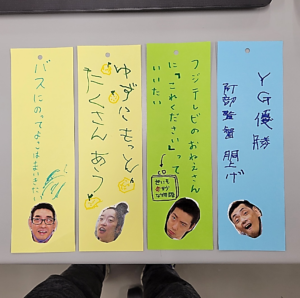 YG優勝
阿部監督 胴上げ
フジテレビのおねえさん
に「これください」って
いいたい
ゆずにもっと
たくさんあう
バスにのってよこはまいきたい